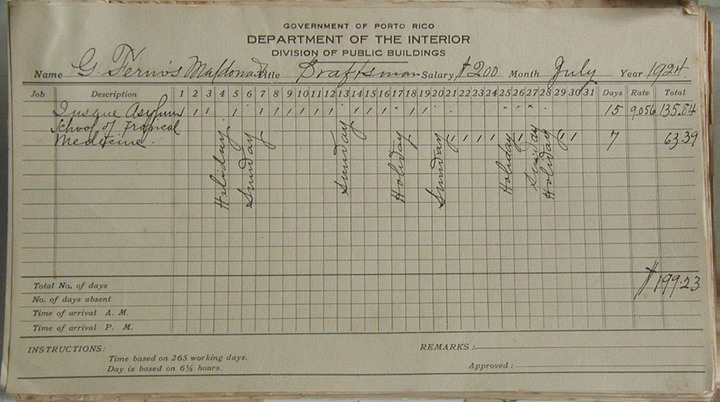 GOVERNMENT OF PORTO RICO
DEPARTMENT OF THE INTERIOR
DIVISION OF PUBLIC BUILDINGS
Name G. Ferrios Maldonado Title Draftsman Salary $200 Month July Year 1924
Job Description 1 2 3 4 5 6 7 8 9 10 11 12 13 14 15 16 17 18 19 20 21 22 23 24 25 26 27 28 29 30 31 Days Rate Total
Asylum 15 9,056 135.84
School of Tropical
Medicine. 7 63.39
Holiday Sunday Sunday Holiday Sunday Holiday Sunday Holiday
$199.23
Total No. of days
No. of days absent
Time of arrival A. M.
Time of arrival P. M.
INSTRUCTIONS: REMARKS:
Time based on 265 working days.
Day is based on 6½ hours. Approved: